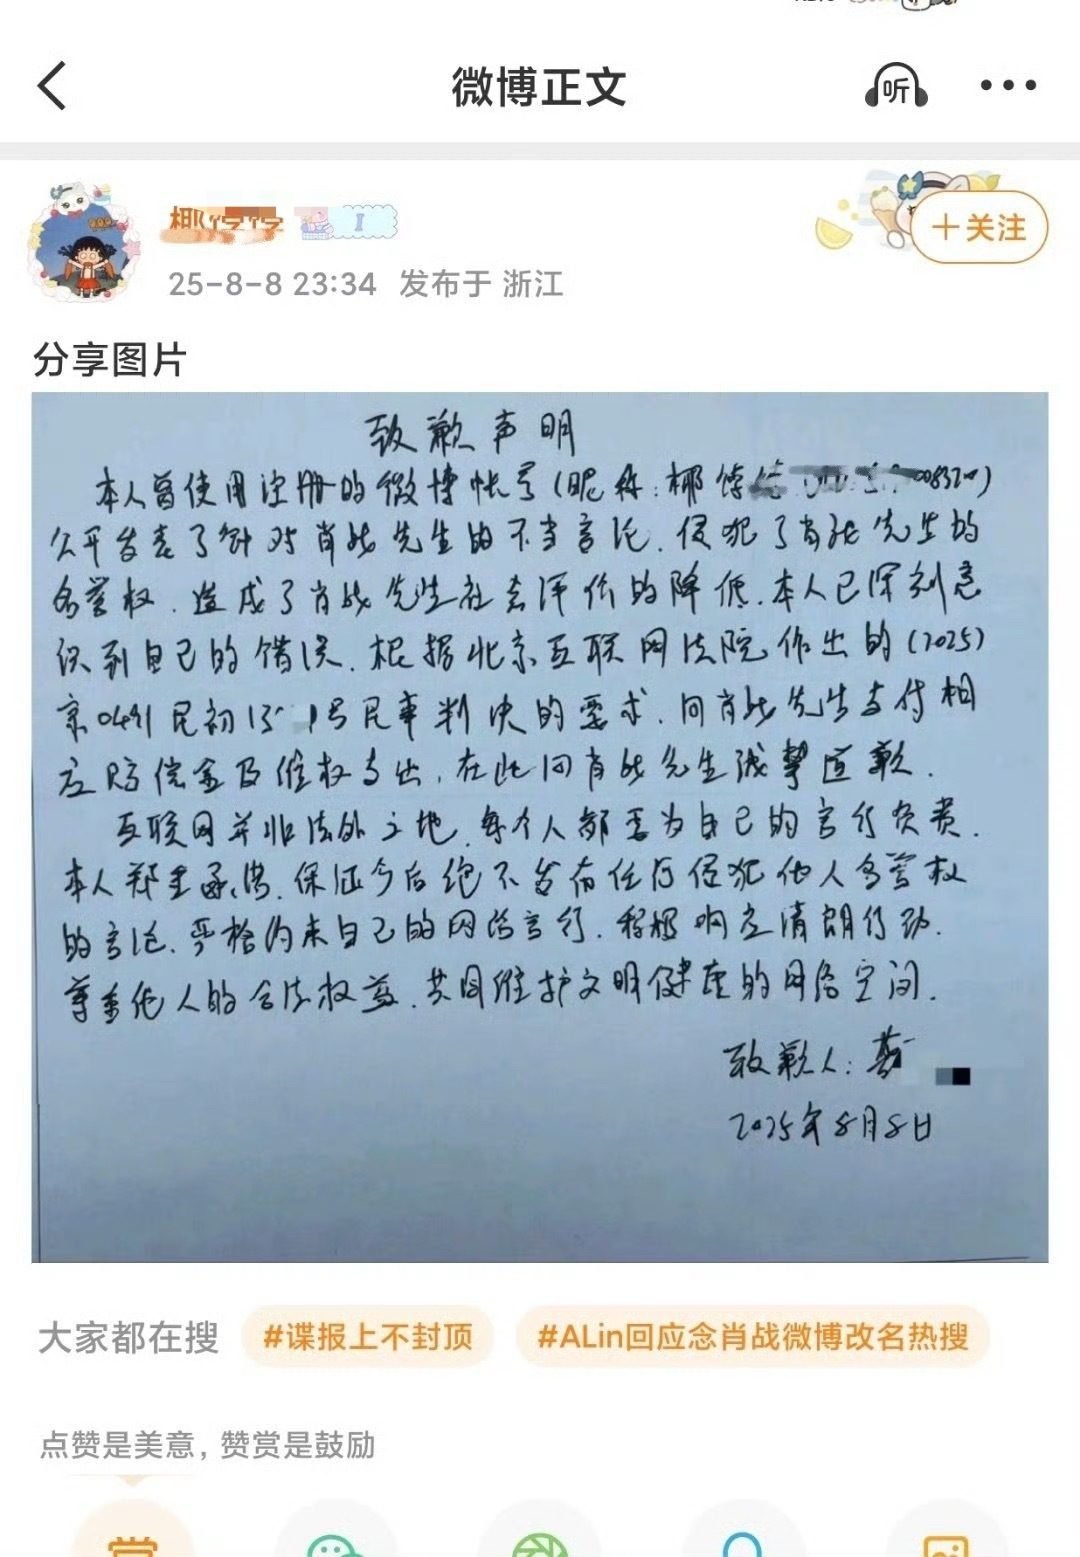 微博正文
听
椰
I
+关注
25-8-8 23:34 发布于 浙江
分享图片
致歉声明
本人曾使用注册的微博帐号(昵称:椰
公开发表了针对肖战先生的不当言论,侵犯了肖战先生的
名誉权,造成了肖战先生社会评价的降低,本人已深刻意
识到自己的错误,根据北京互联网法院作出的(2025)
京0491民初13 号民事判决的要求,向肖战先生支付相
应赔偿金及维权支出,在此向肖战先生诚挚道歉.
互联网并非法外之地,每个人都要为自己的言行负责.
本人郑重承诺,保证今后绝不发布任何侵犯他人名誉权
的言论,严格约束自己的网络言行,积极响应清朗行动.
尊重他人的合法权益,共同维护文明健康的网络空间.
致歉人:
2025年8月8日
大家都在搜 #谍报上不封顶 #ALin回应念肖战微博改名热搜
点赞是美意,赞赏是鼓励